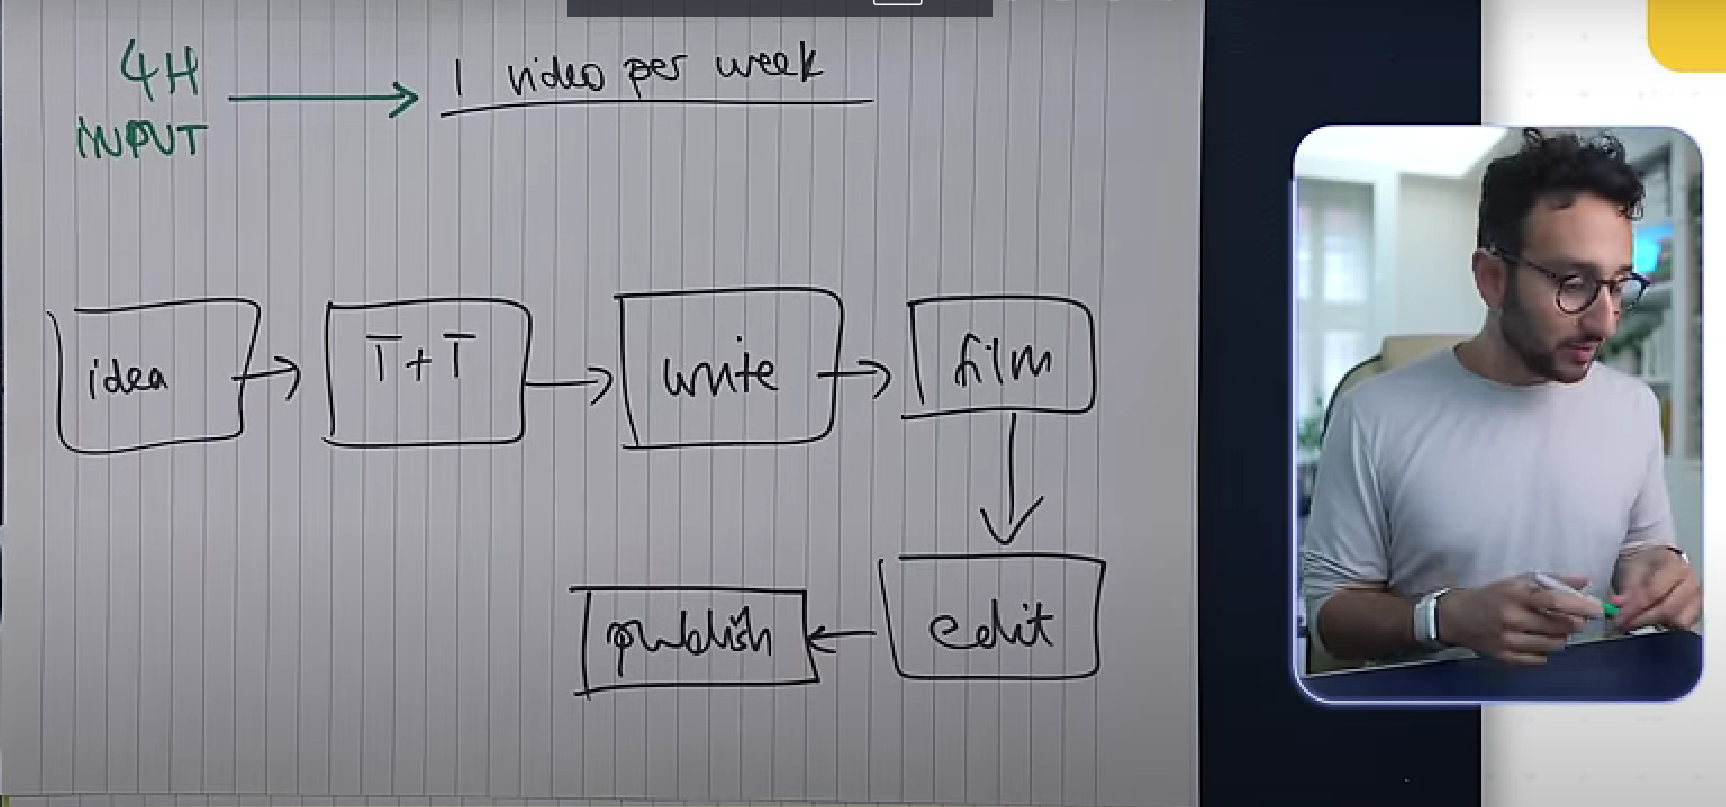 4H
INPUT
1 video per week
idea
T+T
write
film
edit
publish